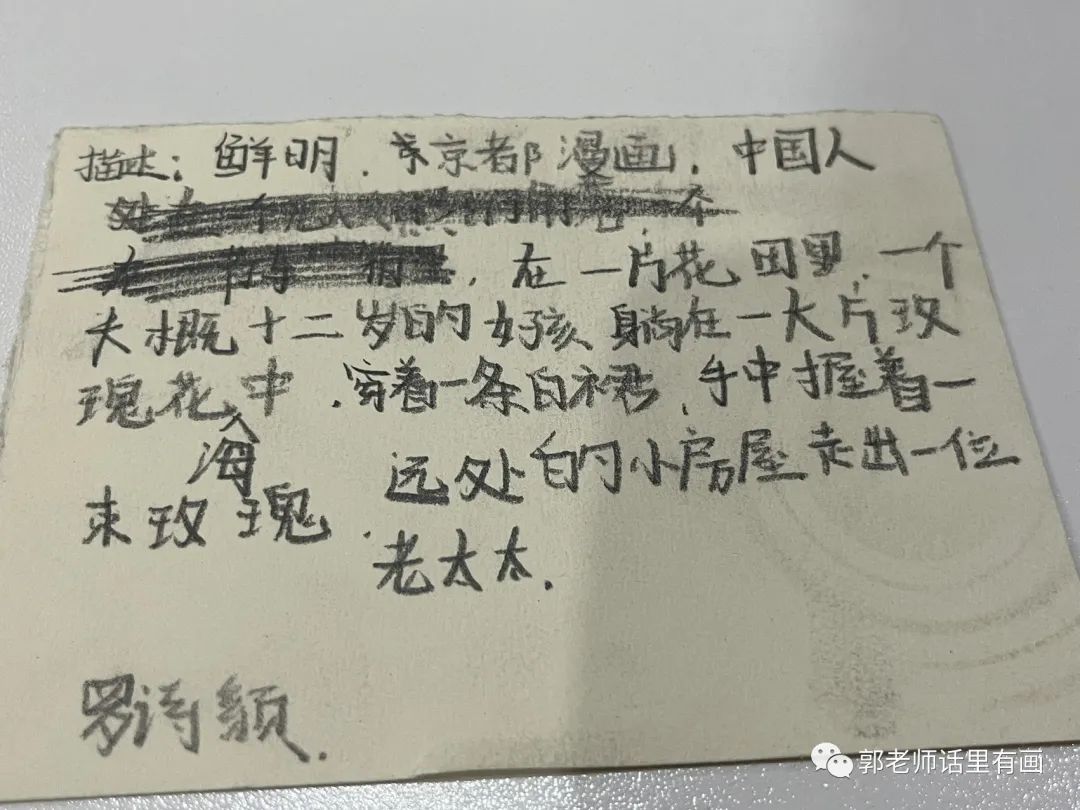 描述：鲜明．东京都漫画，中国人
，在一片花田里，一个
大概十二岁的女孩躺在一大片玫
瑰花海中．穿着一条白裙，手中握着一
束玫瑰．远处的小房屋走出一位
老太太．
罗诗颖．
郭老师话里有画